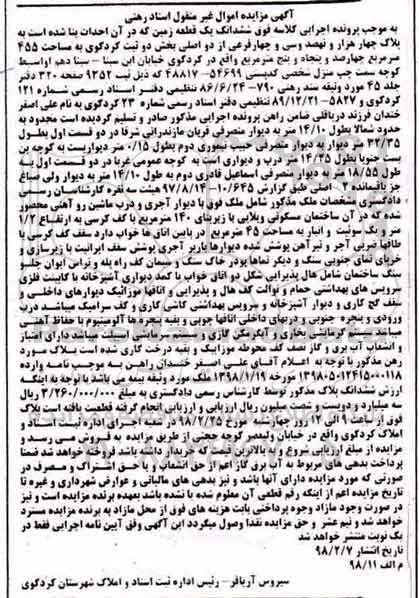 آگهی مزایده اموال غیر منقول اسناد رهنی
به موجب پرونده اجرایی کلاسه فوق ششدانگ یک قطعه زمین که در آن احداث بنا شده است به
پلاک چهار هزار و نهصد وسی و چهارفرعی از دو اصلی بخش دو ثبت کردکوی به مساحت ۴۵۵
مترمربع چهارصد و پنجاه و پنج مترمربع واقع در کردکوی خیابان ابن سینا - سینا دهم اواسط
کوچه سمت چپ منزل شخصی کدپستی ۵۴۶۹۹-۴۸۸۱۷ که ذیل ثبت ۹۲۵۲ صفحه ۳۲۰ دفتر
جلد ۴۵ ورد وثیقه سند رهنی ۷۹۰-۸۶/۶/۲۴ تنظیمی دفتر اسناد رسمی شماره ۱۲۱
کردکوی و ۵۸۲۷-۸۹/۱۲/۲۱ تنظیمی دفتر اسناد رسمی شماره ۲۳ کردکوی به نام علی اصغر
خندان فرزند دریاقلی ضامن راهن پرونده اجرایی مذکور صادر و تسلیم گردیده است محدود به
حدود شمالا بطول ۱۴/۱۰ متر به دیوار متصرفی قربان مازندرانی شرقا در دو قسمت اول بطول
۳۲/۳۵ متر دیوار به دیوار متصرفی حبیب تیموری دوم بطول ۰/۱۵ متر دیواریست به کوچه بن
بست جنوبا بطول ۱۴/۲۵ متر درب و دیواری است به کوچه عمومی غربا در دو قسمت اول به
طول ۱۸/۵۵ متر به دیوار متصرفی اسماعیل قادری دوم به طول ۱۴/۱۰ متر به دیوار ولی صباغ
جز باقیمانده ۲ اصلی طبق گزارش ۱۰/۶۴۵-۹۷/۸/۱۴ هیئت سه نفره کارشناسان رسمی
دادگستری مشخصات ملک مذکور شامل ملک فوق با دیوار آجری و درب ماشین رو آهنی محصور
شده که در آن ساختمان مسکونی ویلایی با زیربنای ۱۴۰ مترمربع با کف کرسی به ارتفاع ۱/۲
متر و یک سوئیت و انبار به مساحت ۴۵ مترمربع در پایین اتاق ها خواب دارد سقف کف کرسی با
طاقها ضربی آجر و تیرآهن پوشش شده دیوارها باربر آجری پوشش سقف ایرانیت با زیرسازی و
خرپای نمای جنوبی سنگ و دیگر نماها پودر خاک سنگ و سیمان کف راه پله و تراس ایوان جلو
سنگ ساختمان شامل هال پذیرایی شکل دو اتاق خواب با کمد دیواری آشپزخانه با کابینت فلزی
سرویس های بهداشتی حمام و توالت کف هال و پذیرایی و اتاقها موزائیک دیوارهای داخلی و
سقف گچ کاری و دیوار آشپزخانه و سرویس بهداشتی کاشی کاری و کف سرامیک میباشد درب
ورودی و پنجره جنوبی و دربهای داخلی اتاقها چوبی و بقیه پنجره ها آلومینیوم با حفاظ آهنی
میباشد سیستم گرمایشی بخاری و آبگرمکن گازی و سیستم سرمایشی اسپلت میباشد دارای امتیاز
و انشعاب آب برق و گاز نصف کف محوطه موزاییک و بقیه درخت کاری شده است پلاک مورد
رهن مذکور با توجه به اعلام آقای علی اصغر خندان راهن به موجب نامه وارده
۱۳۹۸۰۵۰۱۲۴۱۵۰۰۰۱۱۸ مورخه ۱۳۹۸/۱/۱۹ ملک مورد وثیقه بیمه می باشد با توجه به اینکه
ارزش ششدانگ پلاک مذکور توسط کارشناس رسمی دادگستری به مبلغ ۳/۲۶۰/۰۰۰/۰۰۰ ریال
سه میلیارد و دویست و شصت میلیون ریال ارزیابی و ارزیابی انجام گرفته قطعیت یافته است پلاک
فوق از ساعت ۹ الی ۱۲ روز چهارشنبه مورخ ۹۸/۲/۲۵ در شعبه اجرای اداره ثبت اسناد و
املاک کردکوی واقع در خیابان ولیعصر کوچه حجتی از طریق مزایده به فروش می رسد و
مزایده از مبلغ ارزیابی شروع و به بالاترین قیمت که خریدار داشته باشد فروخته خواهد شد ضمنا
پرداخت بدهی های مربوط به آب برق گاز اعم از حق انشعاب و یا حق اشتراک و مصرف در
صورتی که مورد مزایده دارای آنها باشد و نیز بدهی های مالیاتی و عوارض شهرداری و غیره تا
تاریخ مزایده اعم از اینکه رقم قطعی آن معلوم شده یا نشده باشد بعهده برنده مزایده است و نیز
در صورت وجود مازاد وجوه پرداختی بابت هزینه های فوق از محل مازاد به برنده مزایده مسترد
خواهد شد و نیم عشر و حق مزایده نقدا وصول میگردد این آگهی وفق آیین نامه اجرایی فقط در
یک نوبت منتشر خواهد شد
تاریخ انتشار ۹۸/۲/۷
م الف ۹۸/۱۱
سیروس آریافر- رئیس اداره ثبت اسناد و املاک شهرستان کردکوی